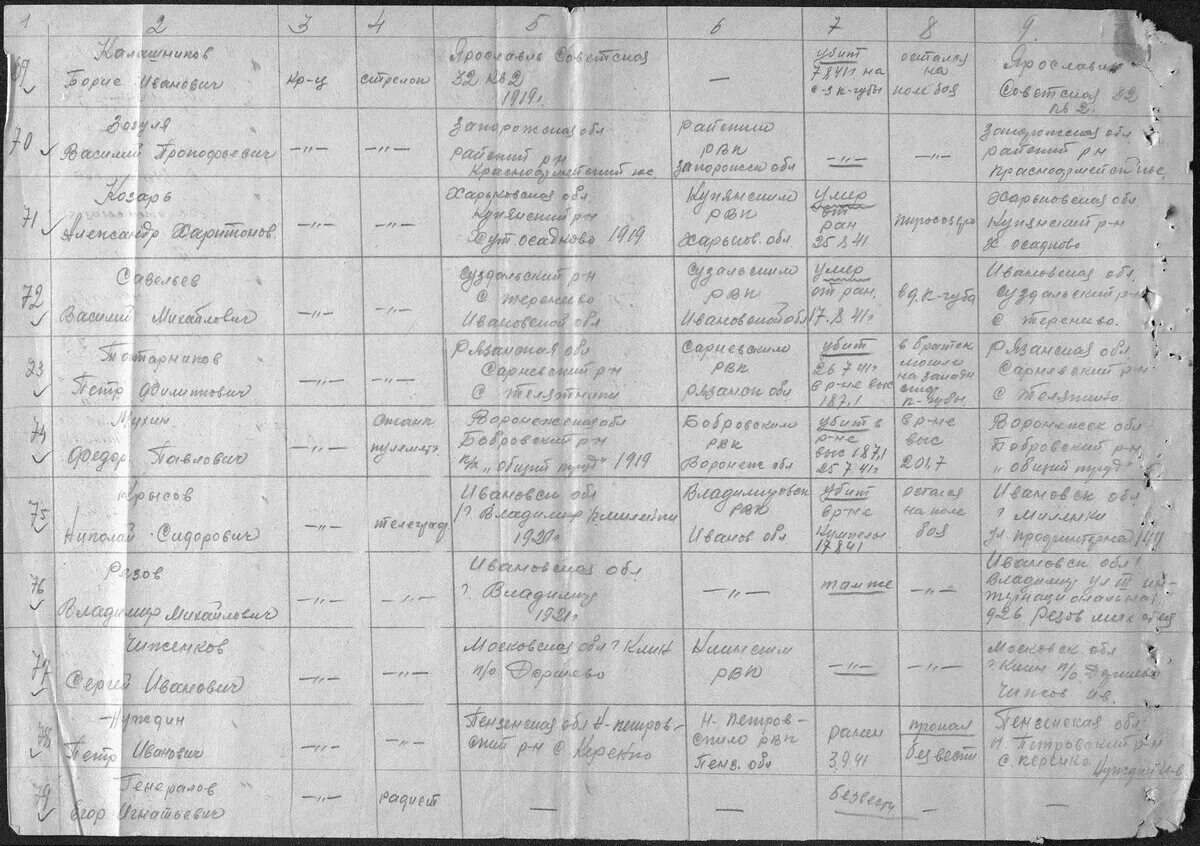 1 2 3 4 5 6 7 8 9.
69 Калашников
Борис Иванович
кр-ц
стрелок
Ярославль Советская
32 кв 2
1919г
—
убит
7841г на
с-з к-губы
остался
на
поле боя
Ярославль
Советская 32
кв 2.
70 Зозуля
Василий Прокофьевич
—"—
—"—
Запорожская обл
райский рн
Красноармейский
Райским
РВК
Запорожск обл
—"—
—"—
Запорожская обл
райский рн
Красноармейский
71 Козарь
Александр Харитонов.
—"—
—"—
Харьковская обл
Купянский р-н
Хут осадково 1919
Купянским
РВК
Харьков. обл
умер
от
ран
25 8 41
Харьковская обл
Купянский р-н
Х осадково
72 Савельев
Василий Михайлович
—"—
—"—
Суздальский р-н
с Теренево
Ивановской обл
Суздальским
РВК
Ивановской обл
умер
от ран.
17.8 41г
в д. к-губа
Ивановская обл
Суздальский р-н
с Теренево.
73 Потарников
Петр Филиппович
—"—
—"—
Рязанская обл
Сарневский рн
с Телятники
Сарневским
РВК
Рязанск обл
убит
26 7 41г
в р-не выс
187,1
в братск
могиле
на западн
к-губы
Рязанская обл
Сарневский рн
с Телятники
74 Мухин
Федор Павлович
—"—
станк
пулемет
Воронежская обл
Бобровский р-н
к/х „общий труд" 1919
Бобровским
РВК
Воронеж обл
убит в
р-не
выс 187,1
25 7 41г
в р-не
выс
201,7
Воронежск обл
Бобровский р-н,
„общий труд"
75 Крысов
Николай Сидорович
—"—
телеград
Ивановск обл
г Владимир
1921г
Владимирск
РВК
Иванов обл
убит
в р-не
17841
остался
на поле
боя
Ивановск обл
г Миленки
76 Резов
Владимир Михайлович
—"—
—"—
Ивановская обл
г. Владимир
1921г
—"—
там же
—"—
Ивановск обл
Владимир ул III ин-
тернациональная
926 Резов мих
77 Чиженков
Сергей Иванович
—"—
—"—
Московская обл г Клин
п/о Доршево
Клинским
РВК
—"—
—"—
Московск. обл
г Клин п/о Доршево
78 Нуждин
Петр Иванович
—"—
—"—
Пензенская обл Н-петров-
ский рн с Керенко
Н-Петров-
ским РВК
Пенз. обл
ранен
3941
пропал
без вести
Пензенская обл
Н. Петровский р-н
с Керенко
79 Генералов
Егор Игнатьевич
—"—
радист
—
—
безвести
—
—